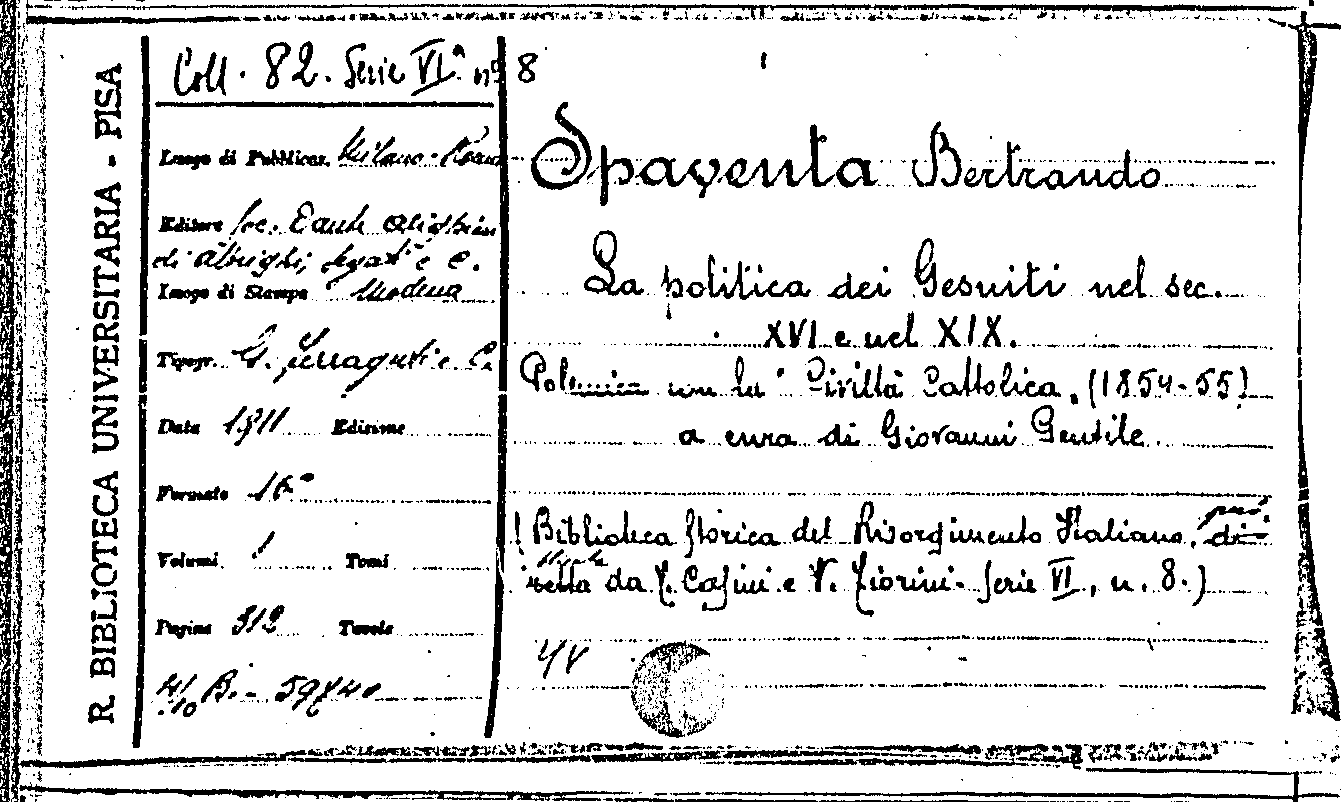 R. BIBLIOTECA UNIVERSITARIA - PISA
Coll. 82. Serie VIª. nº 8
Luogo di Pubblicaz. Milano-Roma
Editore Soc. Dante Alighieri
di Albrighi, Segati e C.
Luogo di Stampa Modena
Tipogr. G. Ferraguti e C.
Data 1911 Edizione
Formato 16º
Volumi 1 Tomi
Pagine 312 Tavole
Spaventa Bertrando
La politica dei Gesuiti nel sec.
XVI e nel XIX.
Polemica con la "Civiltà Cattolica" (1854-55)
a cura di Giovanni Gentile
(Biblioteca Storica del Risorgimento Italiano, di-
retta da T. Casini e V. Fiorini. Serie VI, n. 8.)